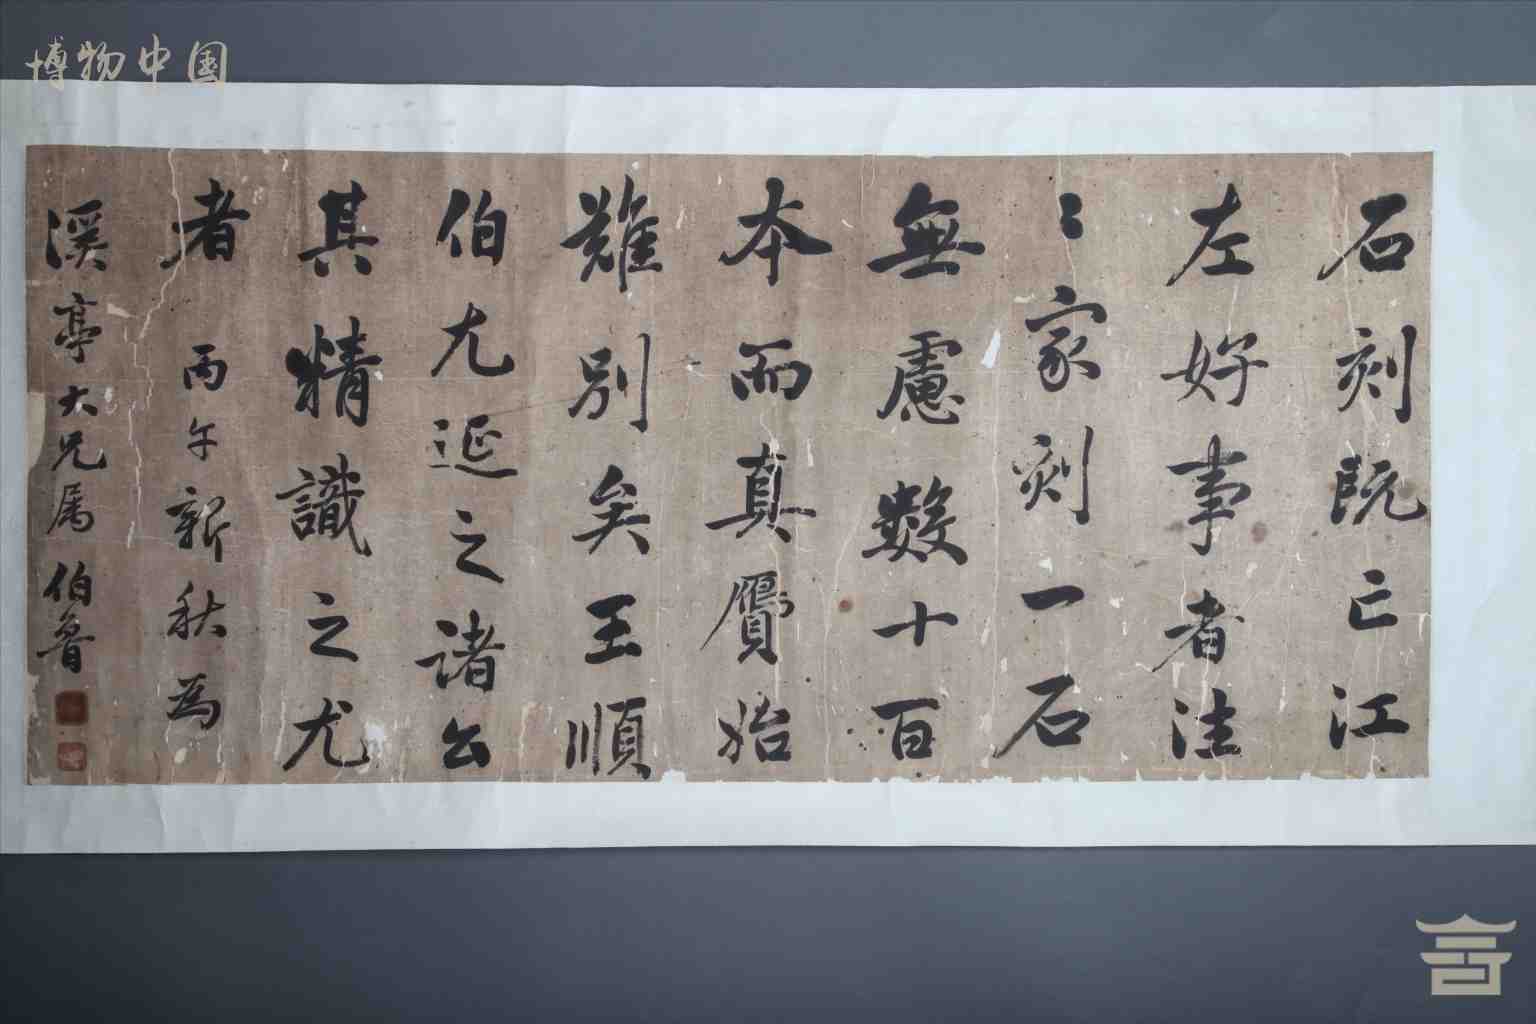 博物中国
石刻既亡江
左好事者往
〻家刻一石
無慮數十百
本而真贋始
難別矣王順
伯尤延之諸公
其精識之尤
者 丙午新秋為
溪亭大兄属 伯魯